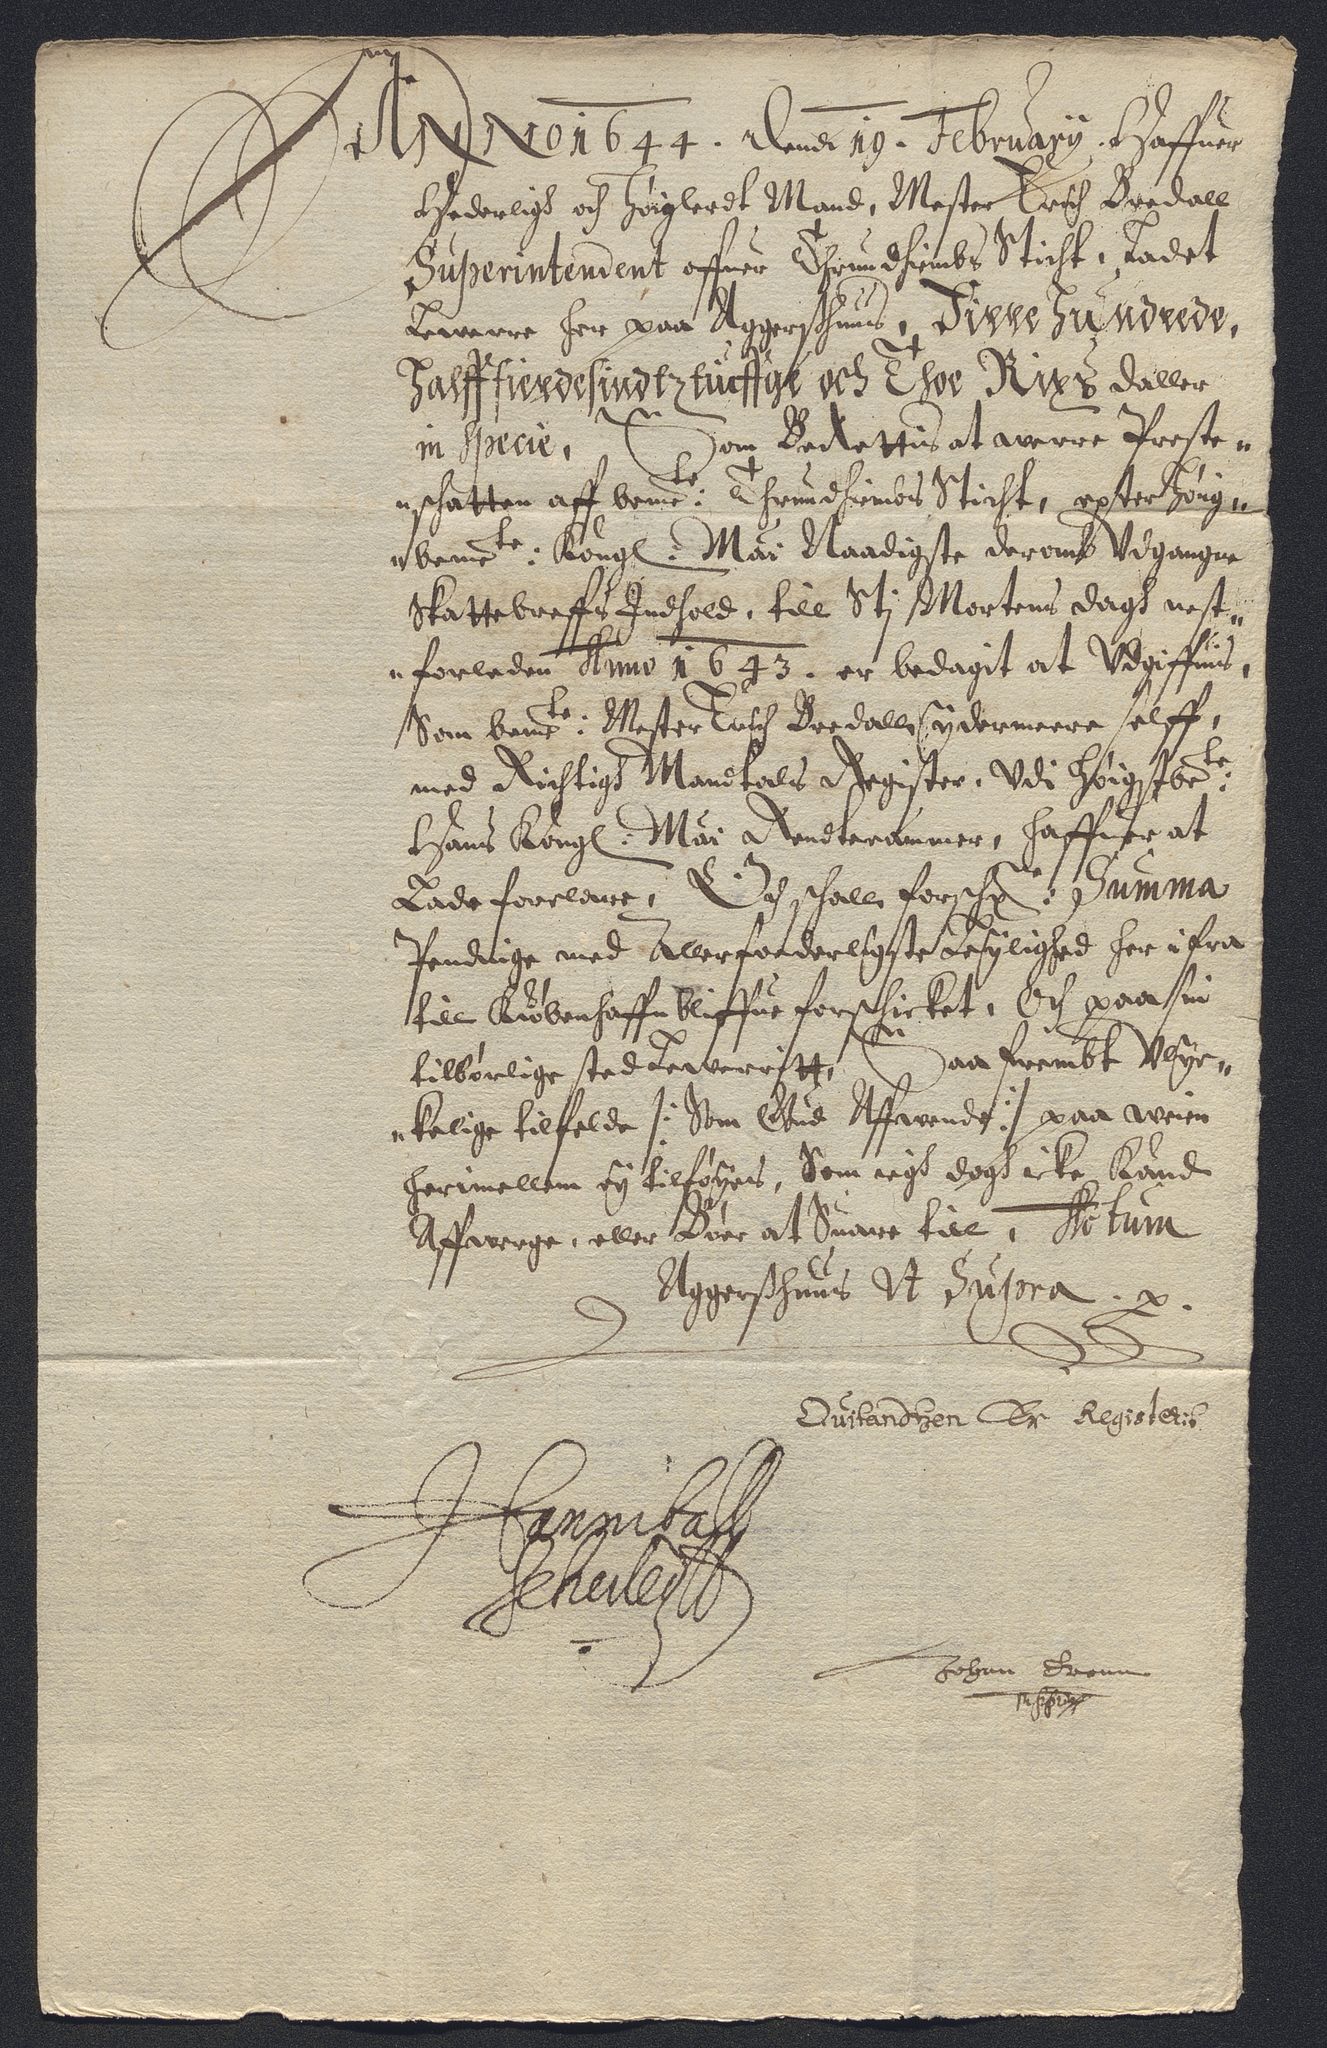 ANNO 1644. Dend 19. February. Haffuer
Hederligh och Høiglerdt Mand, Mester Erich Bredall
Superintendent offuer Thrundhiembs Sticht, Ladet
Leverre her paa Aggerßhuus, Firre Hundrede,
Halfffierdesindtztiuffge och Thoe Rixs daller
in Specie, Som Berettis at werre Preste-
schatten aff bemte: Thrundhiembs Sticht, epter høig-
bemte: Kongl: Mai Naadigste deromb Vdgangne
Skattebreffs Indhold, till Stj Mortens dagh nest-
forleden Anno 1643. er bedagit at Vdgiffuis,
Som bemte: Mester Erich Bredall sydermeere self,
med Richtigh Mandtals Register, Vdi Høigstbete:
Hans Kongl: Mai Rendtecammer, haffuer at
Lade forclare, Och schall forschne: Summa
Pendinge med Allerforderligste Leylighed her ifra
till Kiøbenhaffn bliffue forschicket, Och paa sin
tilbørlige sted Leverritt, Saa frembt Vlyc-
kelige tilfelde /: Som Gud Affwende :/ paa weien
herimellem ey tilføyes, Som iegh dogh icke Kand
Affwerge, eller Bøer at Suare till, Actum
Aggerßhuus Vt Supra. p.
Quitandtzen Er Registerit
Hanniball
Sehested
Johan